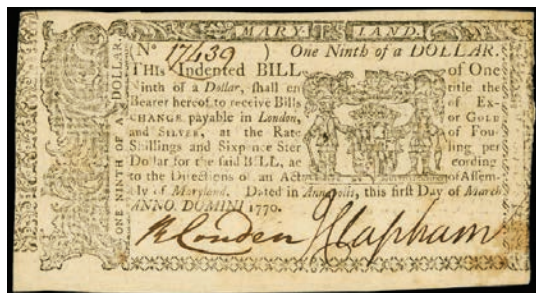 MARYLAND.
No 17439 ) One Ninth of a DOLLAR.
THIS Indented BILL of One
Ninth of a Dollar, shall entitle the
Bearer hereof to receive Bills of EX-
CHANGE payable in London, or GOLD
and SILVER, at the Rate of Four
Shillings and Sixpence Sterling per
Dollar for the said BILL, according
to the Directions of an Act of Assem-
ly of Maryland. Dated in Annapolis, this first Day of March
ANNO DOMINI 1770.
ONE NINTH OF A DOLLAR.
R Couden J Clapham